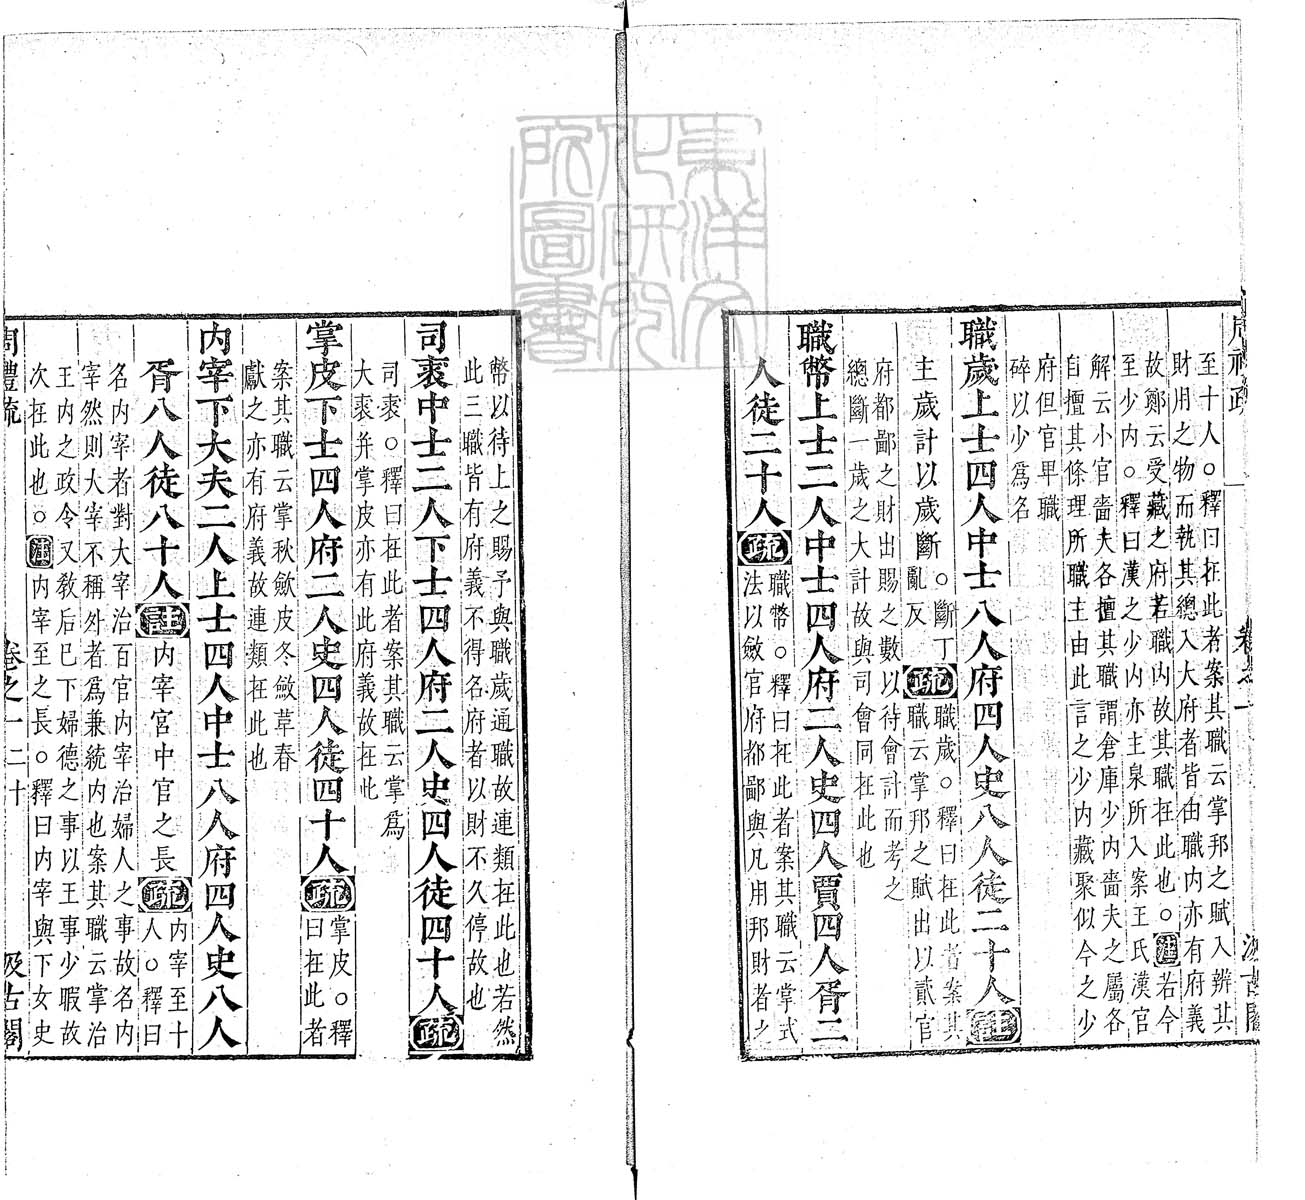 周禮疏 卷之一 汲古閣
至十人○釋曰在此者案其職云掌邦之賦入辨其
財用之物而執其總入大府者皆由職內亦有府義
故鄭云受藏之府若職內故其職在此也○注若今
至少內○釋曰漢之少內亦主泉所入案王氏漢官
解云小官嗇夫各擅其職謂倉庫少內嗇夫之屬各
自擅其條理所職主由此言之少內藏聚似今之少
府但官卑職
碎以少爲名
職歲上士四人中士八人府四人史八人徒二十人註
主歲計以歲斷○斷丁亂反疏職歲○釋曰在此者案其
職云掌邦之賦出以貳官
府都鄙之財出賜之數以待會計而考之
總斷一歲之大計故與司會同在此也
職幣上士二人中士四人府二人史四人賈四人胥二
人徒二十人疏職幣○釋曰在此者案其職云掌式
法以斂官府都鄙與凡用邦財者之
幣以待上之賜予與職歲通職故連類在此也若然
此三職皆有府義不得名府者以財不久停故也
司裘中士二人下士四人府二人史四人徒四十人疏
司裘○釋曰在此者案其職云掌爲
大裘并掌皮亦有此府義故在此
掌皮下士四人府二人史四人徒四十人疏掌皮○釋
曰在此者
案其職云掌秋斂皮冬斂革春
獻之亦有府義故連類在此也
內宰下大夫二人上士四人中士八人府四人史八人
胥八人徒八十人註內宰宮中官之長疏內宰至十
人○釋曰
名內宰者對大宰治百官內宰治婦人之事故名內
宰然則大宰不稱外者爲兼統內也案其職云掌治
王內之政令又敎后已下婦德之事以王事少暇故
次在此也○注內宰至之長○釋曰內宰與下女史
周禮疏 卷之一 二十 汲古閣